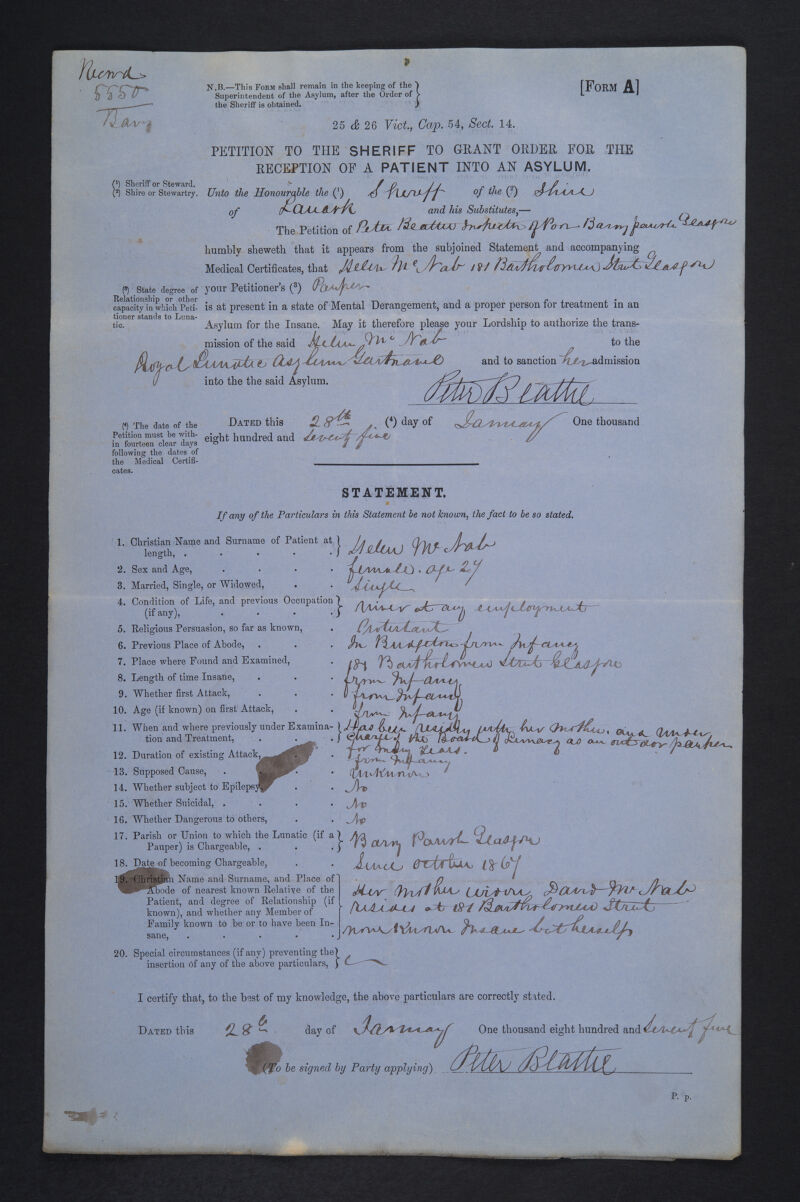 Record
5550
Barony
N.B.—This Form shall remain in the keeping of the
Superintendent of the Asylum, after the Order of
the Sheriff is obtained.
[Form A]
25 & 26 Vict., Cap. 54, Sect. 14.
PETITION TO THE SHERIFF TO GRANT ORDER FOR THE
RECEPTION OF A PATIENT INTO AN ASYLUM.
(¹) Sheriff or Steward.
(²) Shire or Stewartry.
Unto the Honourable the (¹) Sheriff of the (²) Shire
of Lanark and his Substitutes,—
The Petition of Peter Beattie Inspector of Poor Barony parish Glasgow
humbly sheweth that it appears from the subjoined Statement and accompanying
Medical Certificates, that Helen McNab 181 Bartholomew Street Glasgow
(³) State degree of
Relationship or other
capacity in which Peti-
tioner stands to Luna-
tic.
your Petitioner's (³) Pauper
is at present in a state of Mental Derangement, and a proper person for treatment in an
Asylum for the Insane. May it therefore please your Lordship to authorize the trans-
mission of the said Helen McNab to the
Royal Lunatic Asylum Gartnavel and to sanction her admission
into the the said Asylum.
Peter Beattie
(⁴) The date of the
Petition must be with-
in fourteen clear days
following the dates of
the Medical Certifi-
cates.
Dated this 28th (⁴) day of January One thousand
eight hundred and seventy five
STATEMENT.
If any of the Particulars in this Statement be not known, the fact to be so stated.
1. Christian Name and Surname of Patient at
length, . Helen McNab
2. Sex and Age, . female. age 27
3. Married, Single, or Widowed, . Single
4. Condition of Life, and previous Occupation
(if any), . never at any employment
5. Religious Persuasion, so far as known, . Protestant
6. Previous Place of Abode, . In Bridgeton from Infancy
7. Place where Found and Examined, . 181 Bartholomew Street Glasgow
8. Length of time Insane, . from Infancy
9. Whether first Attack, . from Infancy
10. Age (if known) on first Attack, . from Infancy
11. When and where previously under Examina-
tion and Treatment, . Has been residing with her mother, and under
charge of the Board of Lunacy as an out door pauper
for many years.
12. Duration of existing Attack, . from Infancy
13. Supposed Cause, . Unknown
14. Whether subject to Epilepsy, . No
15. Whether Suicidal, . No
16. Whether Dangerous to others, . No
17. Parish or Union to which the Lunatic (if a
Pauper) is Chargeable, . Barony Parish Glasgow
18. Date of becoming Chargeable, . Since October 1867
19. Christian Name and Surname, and Place of
Abode of nearest known Relative of the
Patient, and degree of Relationship (if
known), and whether any Member of
Family known to be or to have been In-
sane, .
Her mother widow David McNab
resides at 181 Bartholomew Street
none known Insane but herself
20. Special circumstances (if any) preventing the
insertion of any of the above particulars,
I certify that, to the best of my knowledge, the above particulars are correctly stated.
Dated this 28th day of January One thousand eight hundred and seventy five
(To be signed by Party applying) Peter Beattie
P. p.